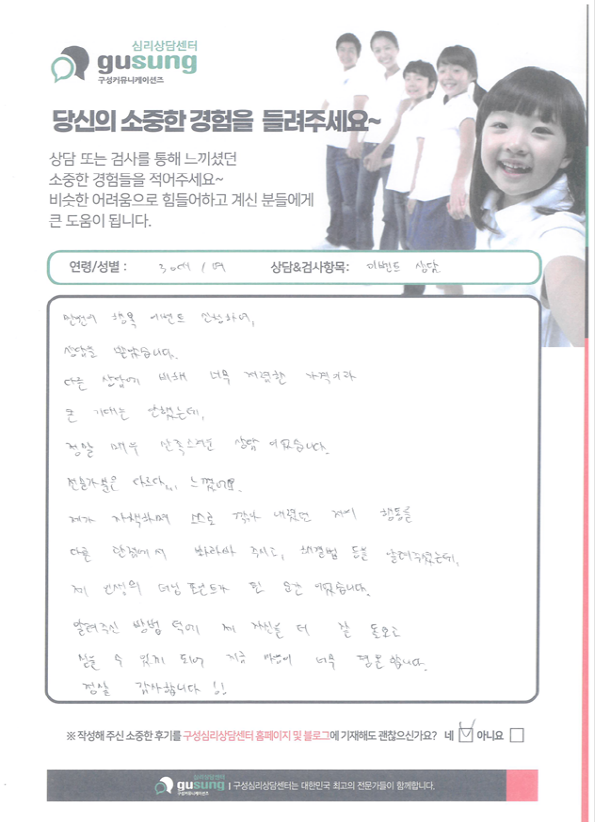 심리상담센터
gusung
구성커뮤니케이션즈
당신의 소중한 경험을 들려주세요~
상담 또는 검사를 통해 느끼셨던
소중한 경험들을 적어주세요~
비슷한 어려움으로 힘들어하고 계신 분들에게
큰 도움이 됩니다.
연령/성별 : 30대 / 여 상담&검사항목: 이벤트 상담
만원의 행복 이벤트 신청하여,
상담을 받았습니다.
다른 상담에 비해 너무 저렴한 가격이라
큰 기대는 안했는데,
정말 매우 만족스러운 상담 이었습니다.
전문가분은 다르다.., 느꼈어요.
제가 자책하며 스스로 깎아 내렸던 저의 행동을
다른 관점에서 바라봐 주시고, 해결법 등을 알려주셨는데,
제 인생의 터닝 포인트가 된 순간 이었습니다.
알려주신 방법 덕에 제 자신을 더 잘 돌보고
있을 수 있게 되어 지금 마음이 너무 평온합니다.
정말 감사합니다 !!
※ 작성해 주신 소중한 후기를 구성심리상담센터 홈페이지 및 블로그에 기재해도 괜찮으신가요? 네 아니요
심리상담센터
gusung
구성커뮤니케이션즈
구성심리상담센터는 대한민국 최고의 전문가들이 함께합니다.